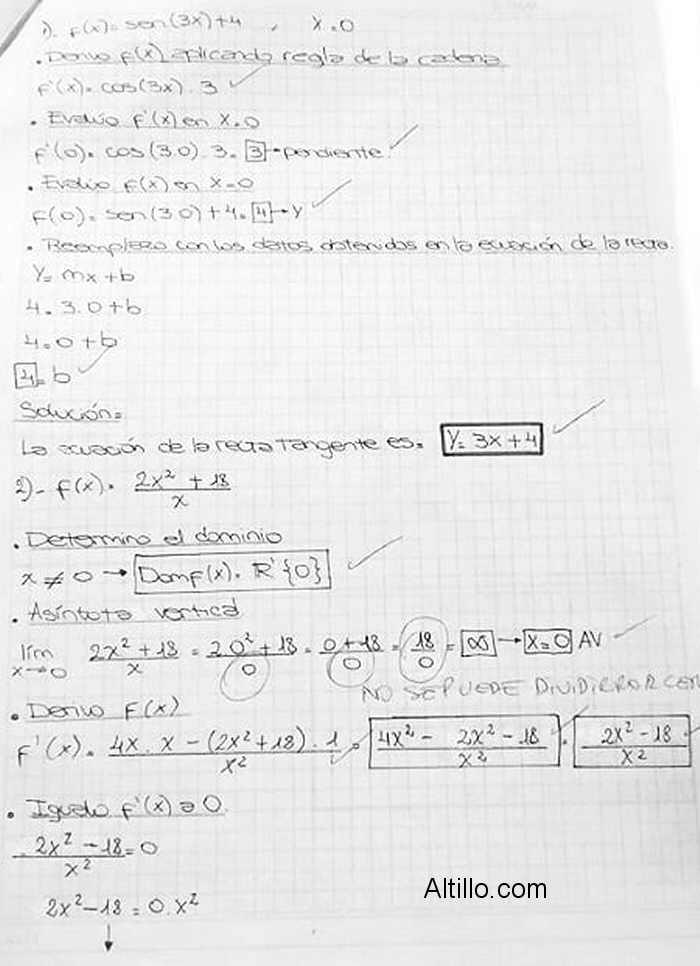 1). f(x)= sen(3x)+4 , x=0
. Derivo f(x) aplicando regla de la cadena
f'(x)= cos(3x) . 3
. Evalúo f'(x) en x=0
f'(0)= cos(3.0) . 3= 3 → pendiente.
. Evalúo f(x) en x=0
f(0)= sen(3.0)+4= 4 → y
. Reemplazo con los datos obtenidos en la ecuación de la recta.
Y= mx+b
4= 3.0+b
4=0+b
4= b
Solución=
La ecuación de la recta tangente es= Y= 3x+4
2)- f(x)= (2x² + 18)/x
. Determino el dominio
x ≠ 0 → Dom f(x)= R' {0}
. Asíntota vertical
lím x→0 (2x²+18)/x = (2.0²+18)/0 = (0+18)/0 = 18/0 = ∞ → x=0 AV
NO SE PUEDE DIVIDIR POR CER
. Derivo f(x)
f'(x)= (4x . x − (2x²+18) . 1)/x² = (4x² − 2x² − 18)/x² = (2x²−18)/x²
. Igualo f'(x) a 0.
(2x² −18)/x² = 0
2x²−18 = 0.x²
↓
Altillo.com